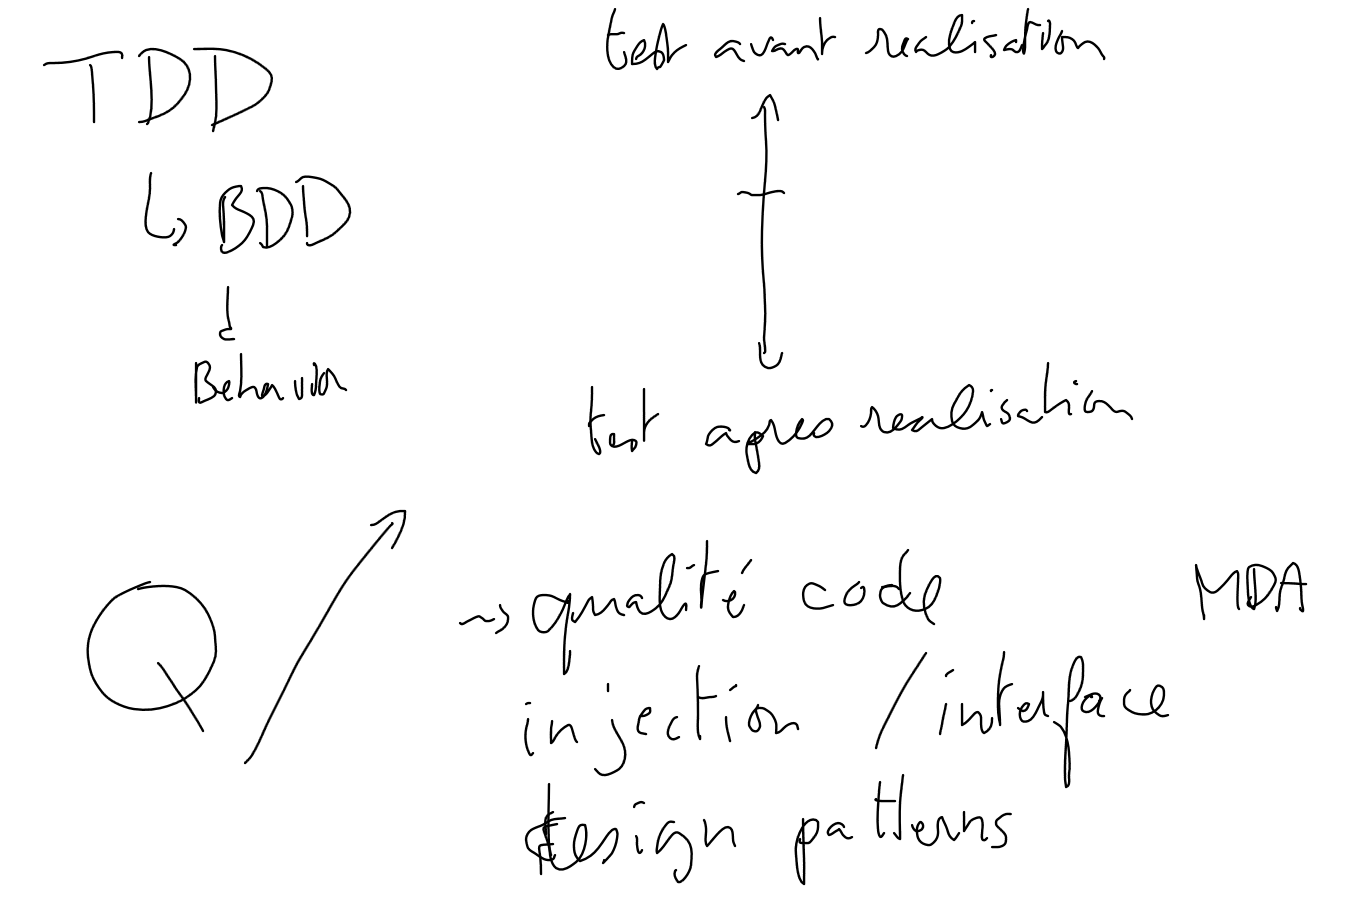 TDD
BDD
Behavior
test avant realisation
test apres realisation
Q
qualité code
MDA
injection / interface
design patterns